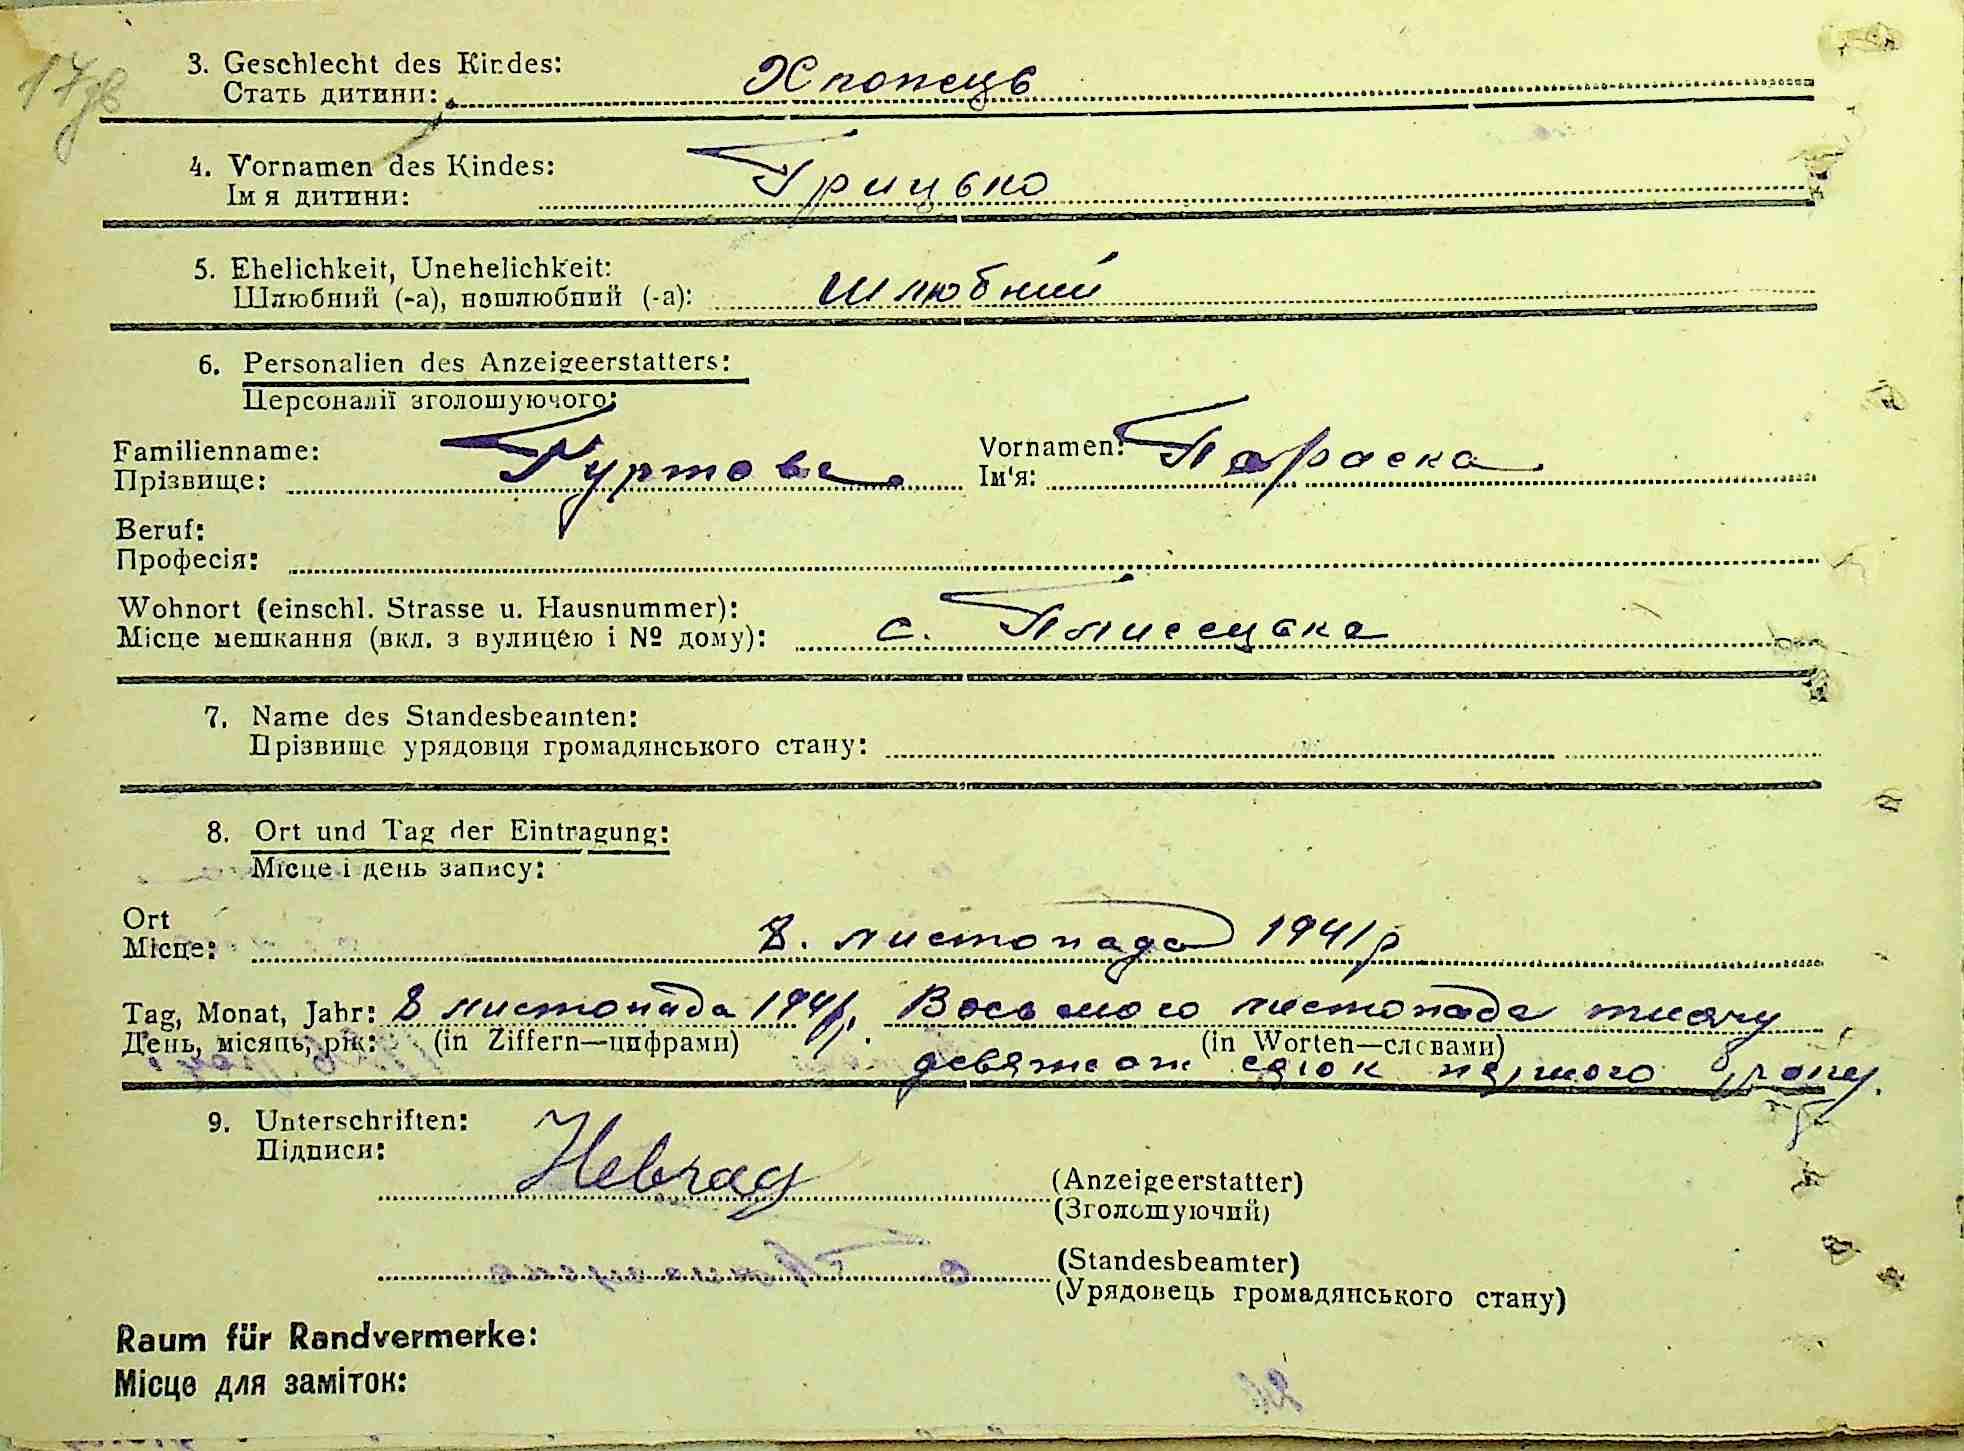 3. Geschlecht des Kindes:
Стать дитини: Хлопець
4. Vornamen des Kindes:
Ім я дитини: Грицько
5. Ehelichkeit, Unehelichkeit:
Шлюбний (-а), нешлюбний (-а): шлюбний
6. Personalien des Anzeigeerstatters:
Персоналії зголошуючого:
Familienname: Vornamen:
Прізвище: Гуртова Ім'я: Параска
Beruf:
Професія:
Wohnort (einschl. Strasse u. Hausnummer):
Місце мешкання (вкл. з вулицею і № дому): с. Плисецьке
7. Name des Standesbeamten:
Прізвище урядовця громадянського стану:
8. Ort und Tag der Eintragung:
Місце і день запису:
Ort
Місце: 8. листопада 1941р
Tag, Monat, Jahr: 8 листопада 1941р. Восьмого листопада тисячу
День, місяць, рік: (in Ziffern—цифрами) (in Worten—словами)
девятсот сорок першого року.
9. Unterschriften:
Підписи:
(Anzeigeerstatter)
(Зголошуючий)
(Standesbeamter)
(Урядовець громадянського стану)
Raum für Randvermerke:
Місце для заміток: